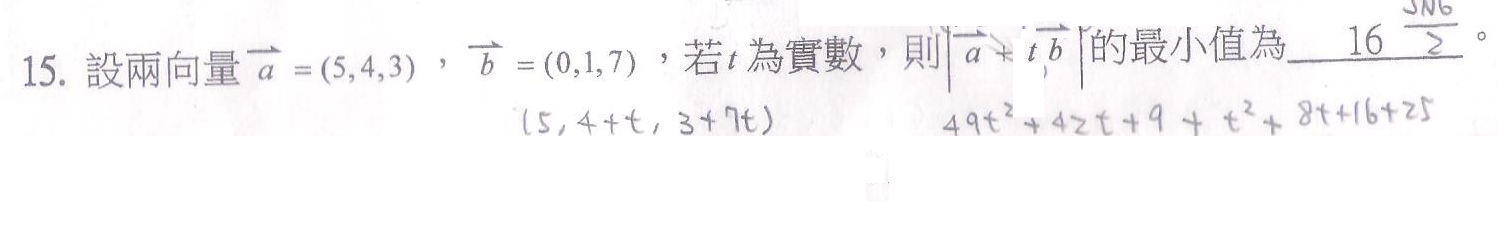 15. 設兩向量 a = (5,4,3) , b = (0,1,7) ,若 t 為實數,則 | a + t b | 的最小值為 16 5√6/2 。
(5, 4+t, 3+7t) 49t² + 42t + 9 + t² + 8t+16+25